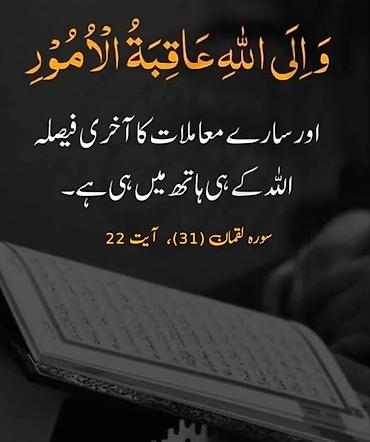 وَ اِلَى اللّٰهِ عَاقِبَةُ الْاُمُوْرِ
اور سارے معاملات کا آخری فیصلہ
اللہ کے ہی ہاتھ میں ہی ہے۔
سورہ لقمان (31)، آیت 22